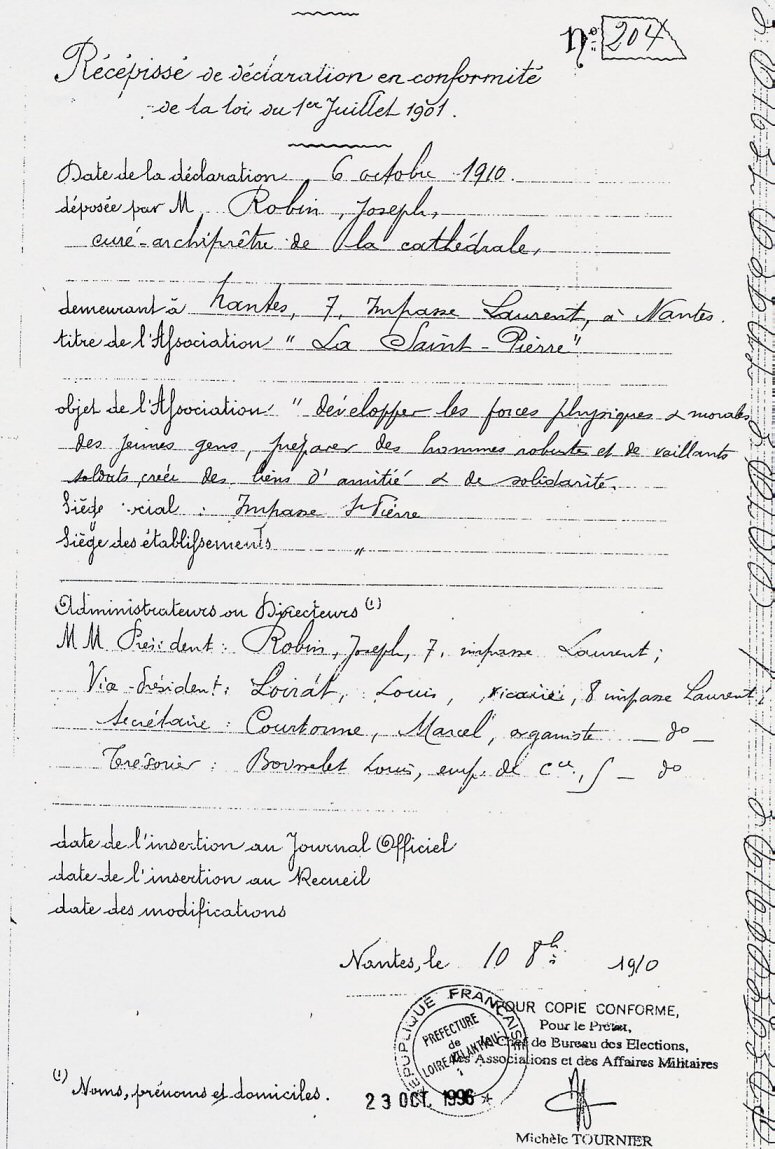 Nº 204
Récépissé de déclaration en conformité
de la loi du 1er Juillet 1901.
Date de la déclaration 6 octobre 1910.
déposée par M Robin, Joseph,
curé-archiprêtre de la cathédrale,
demeurant à Nantes, 7, Impasse Laurent, à Nantes.
titre de l'Association " La Saint-Pierre"
objet de l'Association " développer les forces physiques & morales
des jeunes gens, préparer des hommes robustes et de vaillants
soldats, créer des liens d'amitié & de solidarité.
Siège cial : Impasse St Pierre
Siège des établissements "
Administrateurs ou Directeurs (1)
MM Président : Robin, Joseph, 7, impasse Laurent ;
Vice-Président : Loirat, Louis, vicaire, 8 impasse Laurent
Secrétaire : Courtonne, Marcel, organiste _ do _
Trésorier : Louis, emp. de cce, _ do
date de l'insertion au Journal Officiel
date de l'insertion au Recueil
date des modifications
Nantes, le 10 8bre 1910
RÉPUBLIQUE FRANÇAISE
PREFECTURE
de
LOIRE ATLANTIQUE
POUR COPIE CONFORME,
Pour le Préfet,
Chef de Bureau des Elections,
des Associations et des Affaires Militaires
(1) Noms, prénoms et domiciles.
23 OCT. 1996
Michèle TOURNIER